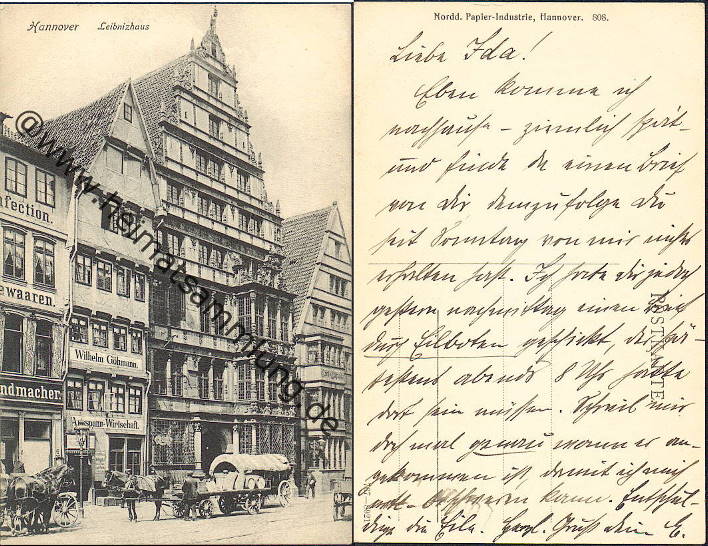 Hannover Leibnizhaus
© www.heimatsammlung.de
nfection.
ewaaren.
ndmacher.
Wilhelm Göhmann.
Ausspann-Wirtschaft.
Nordd. Papier-Industrie, Hannover. 808.
Liebe Ida!
Eben komme ich
nachhause – ziemlich spät –
und finde da einen Brief
von Dir demzufolge Du
seit Sonntag von mir nichts
erhalten hast. Ich habe Dir jedoch
gestern nachmittag einen Brief
durch Eilboten geschickt, der spä-
testens abends 8 Uhr hätte
dort sein müssen. Schreib mir
doch mal genau wann er an-
gekommen ist, damit ich mich
kann. Entschul-
dige die Eile. Herzl. Gruß Dein E.
POSTKARTE